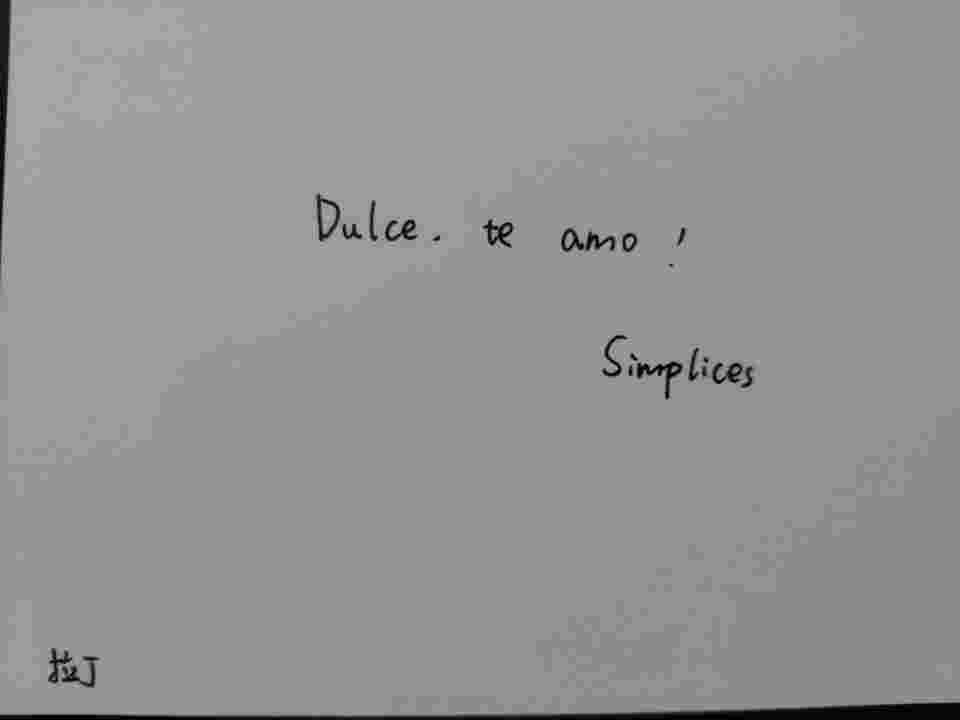 Dulce. te amo!
Simplices
拉丁